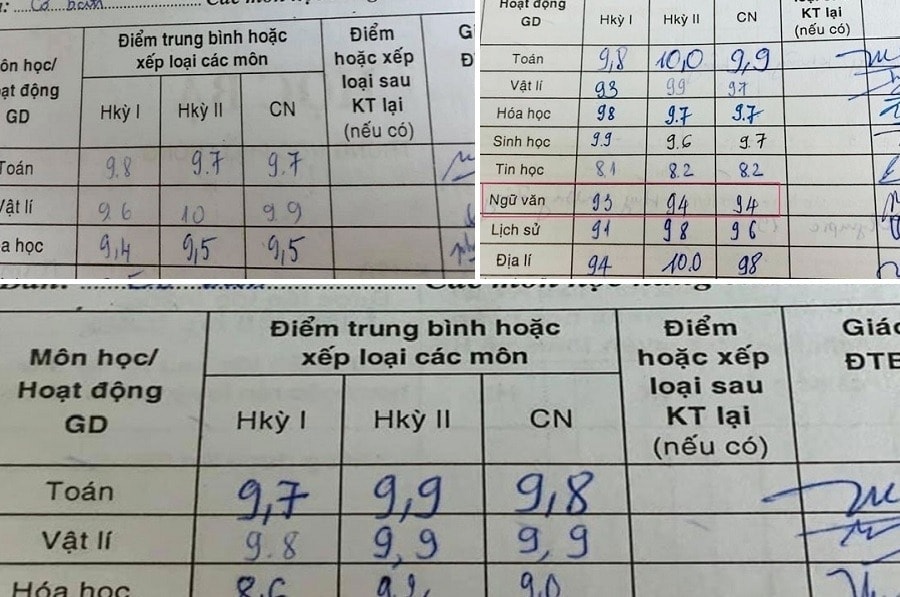 Điểm trung bình hoặc
xếp loại các môn
Điểm
hoặc xếp
loại sau
KT lại
(nếu có)
ôn học/
ạt động
GD
Hkỳ I Hkỳ II CN
Toán 9.8 9.7 9.7
Vật lí 9.6 10 9.9
a học 9,4 9,5 9,5
Hoạt động
GD
Hkỳ I Hkỳ II CN
KT lại
(nếu có)
Toán 9,8 10,0 9,9
Vật lí 93 99 97
Hóa học 98 9.7 9.7
Sinh học 9.9 9.6 9.7
Tin học 8.1 8.2 8.2
Ngữ văn 93 94 94
Lịch sử 91 98 96
Địa lí 94 10.0 98
Môn học/
Hoạt động
GD
Điểm trung bình hoặc
xếp loại các môn
Hkỳ I Hkỳ II CN
Điểm
hoặc xếp
loại sau
KT lại
(nếu có)
Giáo
ĐTB
Toán 9,7 9,9 9,8
Vật lí 9.8 9,9 9,9
Hóa học 8.6 9.0